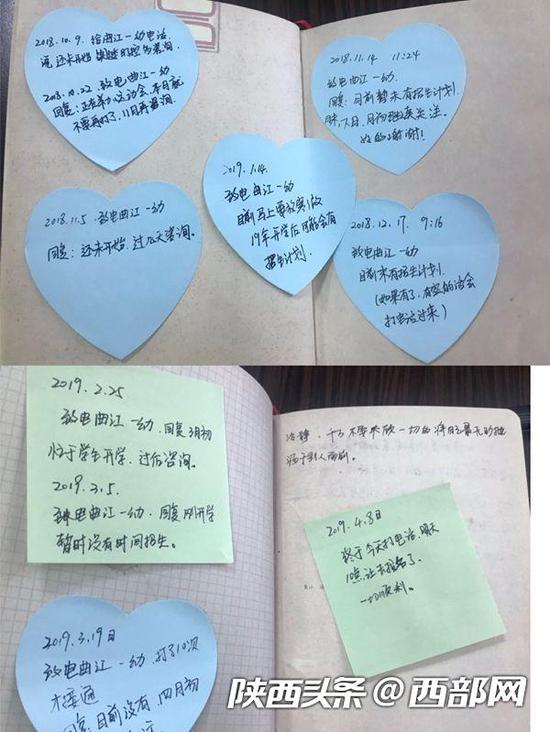 2018.10.9. 给曲江一幼电话,
说还未开始
2018.10.22 致电曲江一幼
回复:正在举办运动会,本月就
不要再打了,11月再咨询。
2018.11.14 11:24
致电曲江一幼.
回复:目前暂未有招生计划.
月初继续关注.
好的谢谢!
2019.1.14.
致电曲江一幼
目前马上要放寒假
19年开学后可能会有
招生计划.
2018.11.5. 致电曲江一幼
回复:还未开始.过几天咨询.
2018.12.17. 9:16
致电曲江一幼
目前未有招生计划.
(如果有了,有空的话会
打电话过来)
2019.2.25
致电曲江一幼.回复3月初
忙于学生开学,过后咨询。
2019.3.5.
致电曲江一幼.回复刚开学
暂时没有时间招生。
冷静.千万不要失败 一切的
于别人面前.
2019.4.8日
终于今天打电话.明天
10点让来报名了.
一切顺利。
2019.3.19日
致电曲江一幼.打了10次
才接通
回复:目前没有.四月初
陕西头条@西部网